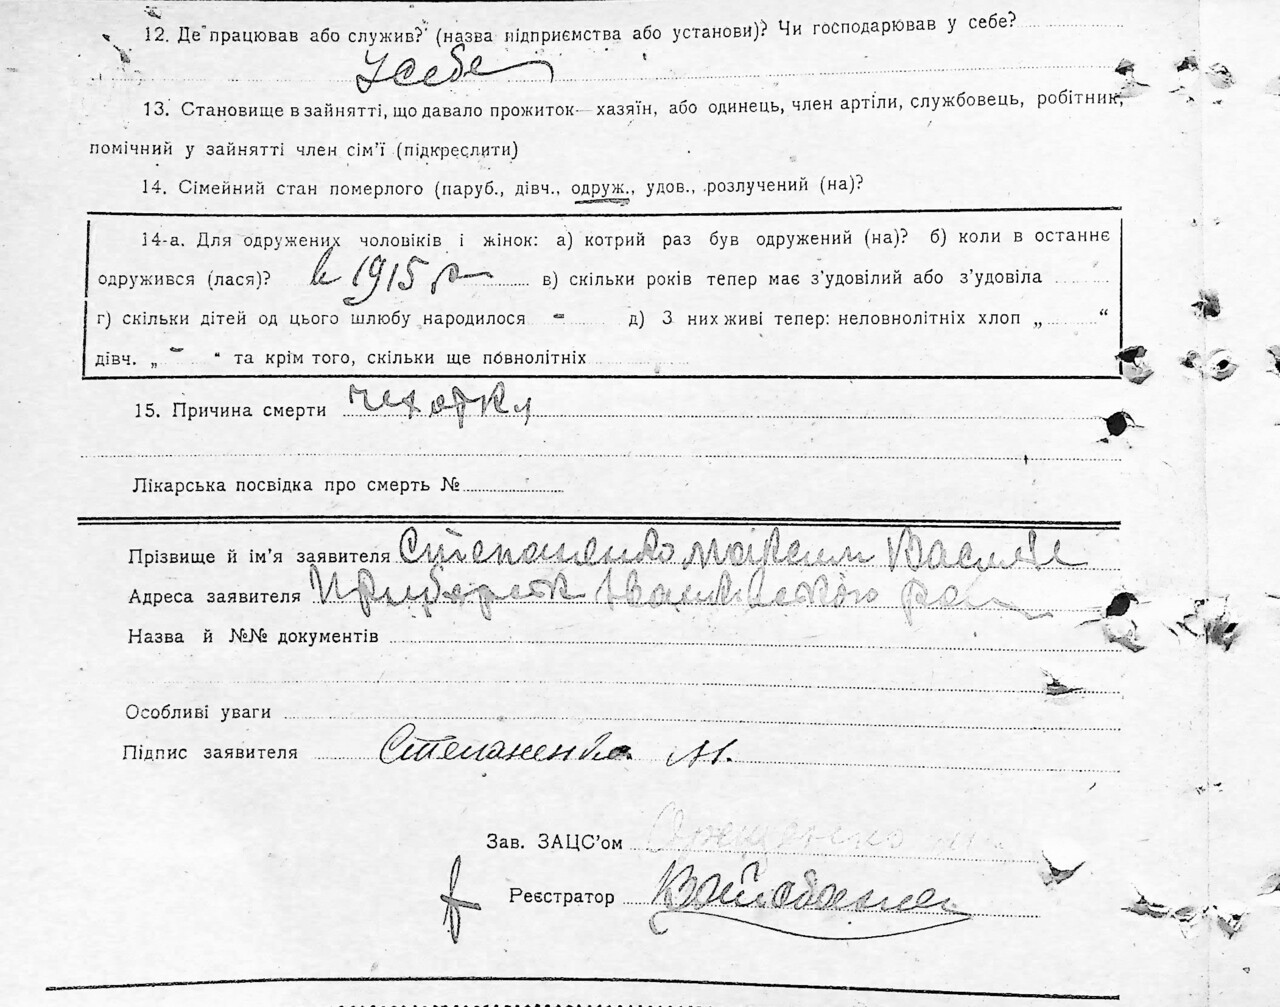 12. Де працював або служив? (назва підприємства або установи)? Чи господарював у себе?
У себе
13. Становище в зайнятті, що давало прожиток— хазяїн, або одинець, член артіли, службовець, робітник,
помічний у зайнятті член сім'ї (підкреслити)
14. Сімейний стан померлого (паруб., дівч., одруж., удов., розлучений (на)?
14-а. Для одружених чоловіків і жінок: а) котрий раз був одружений (на)? б) коли в останнє
одружився (лася)? в 1915 р в) скільки років тепер має з'удовілий або з'удовіла
г) скільки дітей од цього шлюбу народилося - д) З них живі тепер: неповнолітніх хлоп „ “
дівч. „ - “ та крім того, скільки ще повнолітніх
15. Причина смерти чехотка
Лікарська посвідка про смерть №
Прізвище й ім'я заявителя Степаненко Максим
Адреса заявителя
Назва й №№ документів
Особливі уваги
Підпис заявителя Степаненко М.
Зав. ЗАЦС'ом
Реєстратор